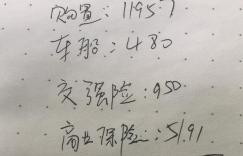 购置：11957
车船：480
交强险：950
商业保险：5191